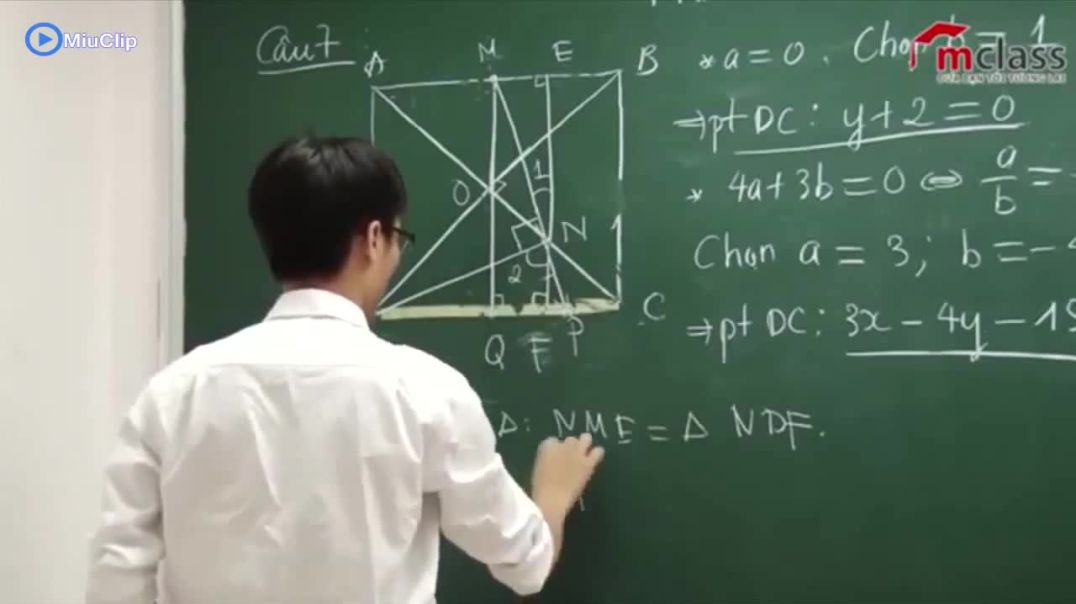 MiuClip
mclass
Câu 7
A M E B
O 1 N
2
Q F P C
* a = 0. Chọn b = 1
⇒ pt DC: y + 2 = 0
* 4a + 3b = 0 ⇔ a/b = -
Chọn a = 3; b = -4
⇒ pt DC: 3x - 4y - 15
Δ: NME = Δ NDF.